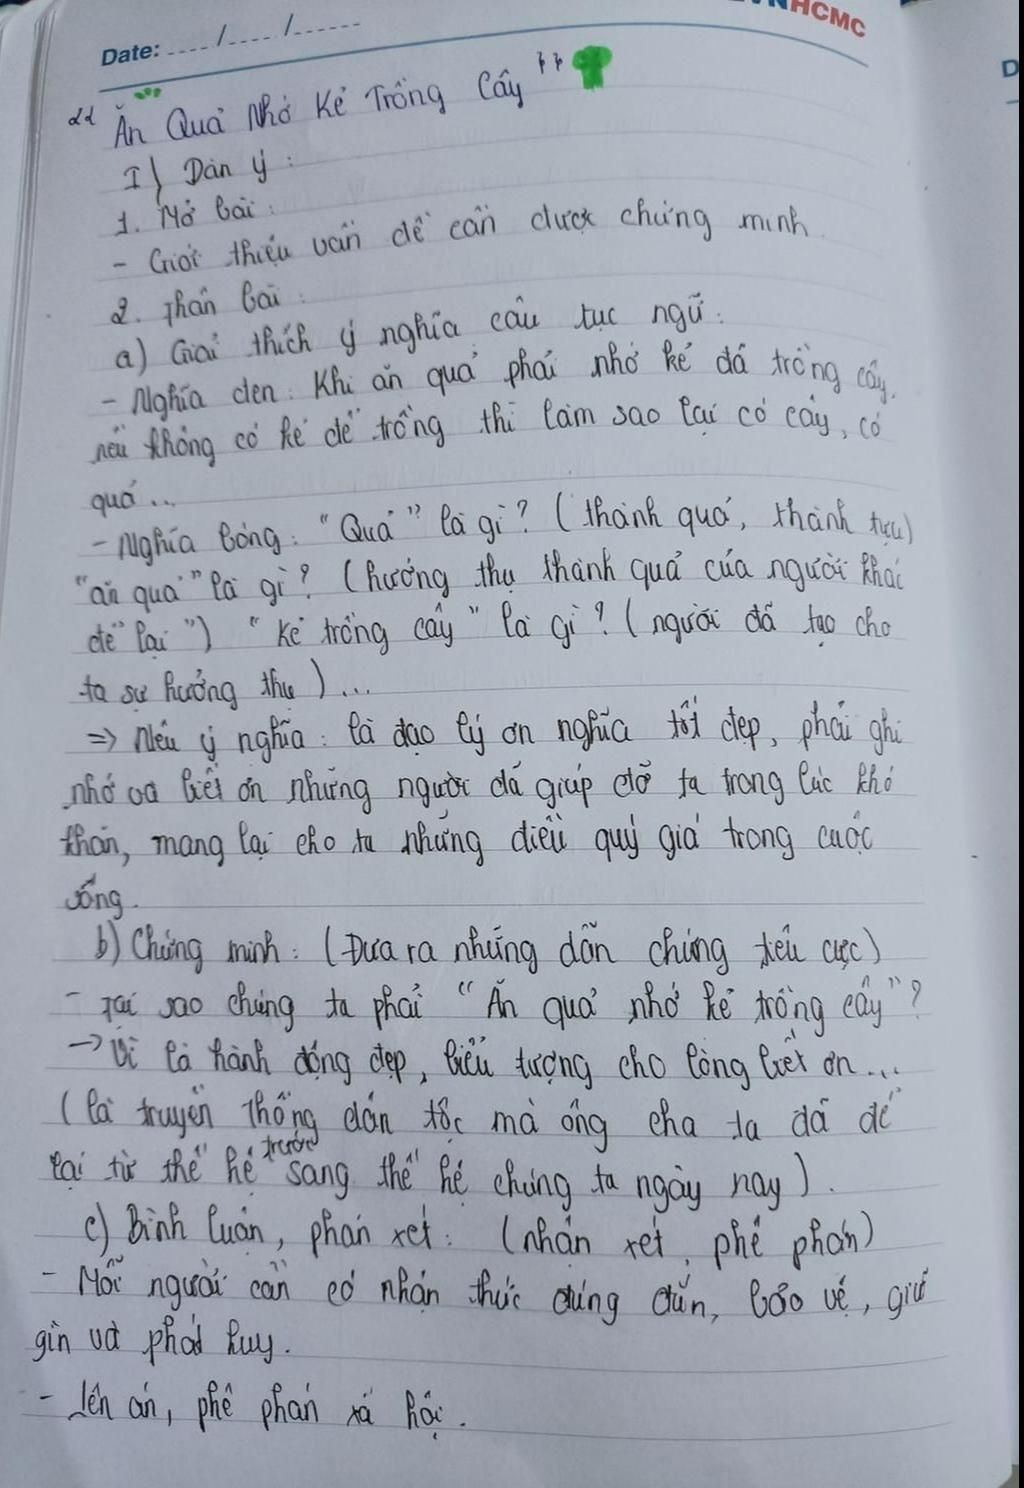 VNHCMC
Date: ..../..../......
"Ăn Quả Nhớ Kẻ Trồng Cây"
I) Dàn ý:
1. Mở bài:
- Giới thiệu vấn đề cần được chứng minh
2. Thân bài:
a) Giải thích ý nghĩa câu tục ngữ:
- Nghĩa đen: Khi ăn quả phải nhớ kẻ đã trồng cây,
nếu không có kẻ để trồng thì làm sao lại có cây, có
quả...
- Nghĩa bóng: "Quả" là gì? (thành quả, thành tựu)
"ăn quả" là gì? (hưởng thụ thành quả của người khác
để lại") "Kẻ trồng cây" là gì? (người đã tạo cho
ta sự hưởng thụ)...
=> Nêu ý nghĩa: là đạo lý ơn nghĩa tốt đẹp, phải ghi
nhớ và biết ơn những người đã giúp đỡ ta trong lúc khó
khăn, mang lại cho ta những điều quý giá trong cuộc
sống.
b) Chứng minh: (Đưa ra những dẫn chứng tiêu cực)
- Tại sao chúng ta phải "Ăn quả nhớ kẻ trồng cây"?
→ Vì là hành động đẹp, biểu tượng cho lòng biết ơn...
(là truyền thống dân tộc mà ông cha ta đã để
lại từ thế hệ trước sang thế hệ chúng ta ngày nay).
c) Bình luận, phán xét: (nhận xét, phê phán)
- Mỗi người cần có nhận thức đúng đắn, bảo vệ, giữ
gìn và phát huy.
- Lên án, phê phán xã hội.